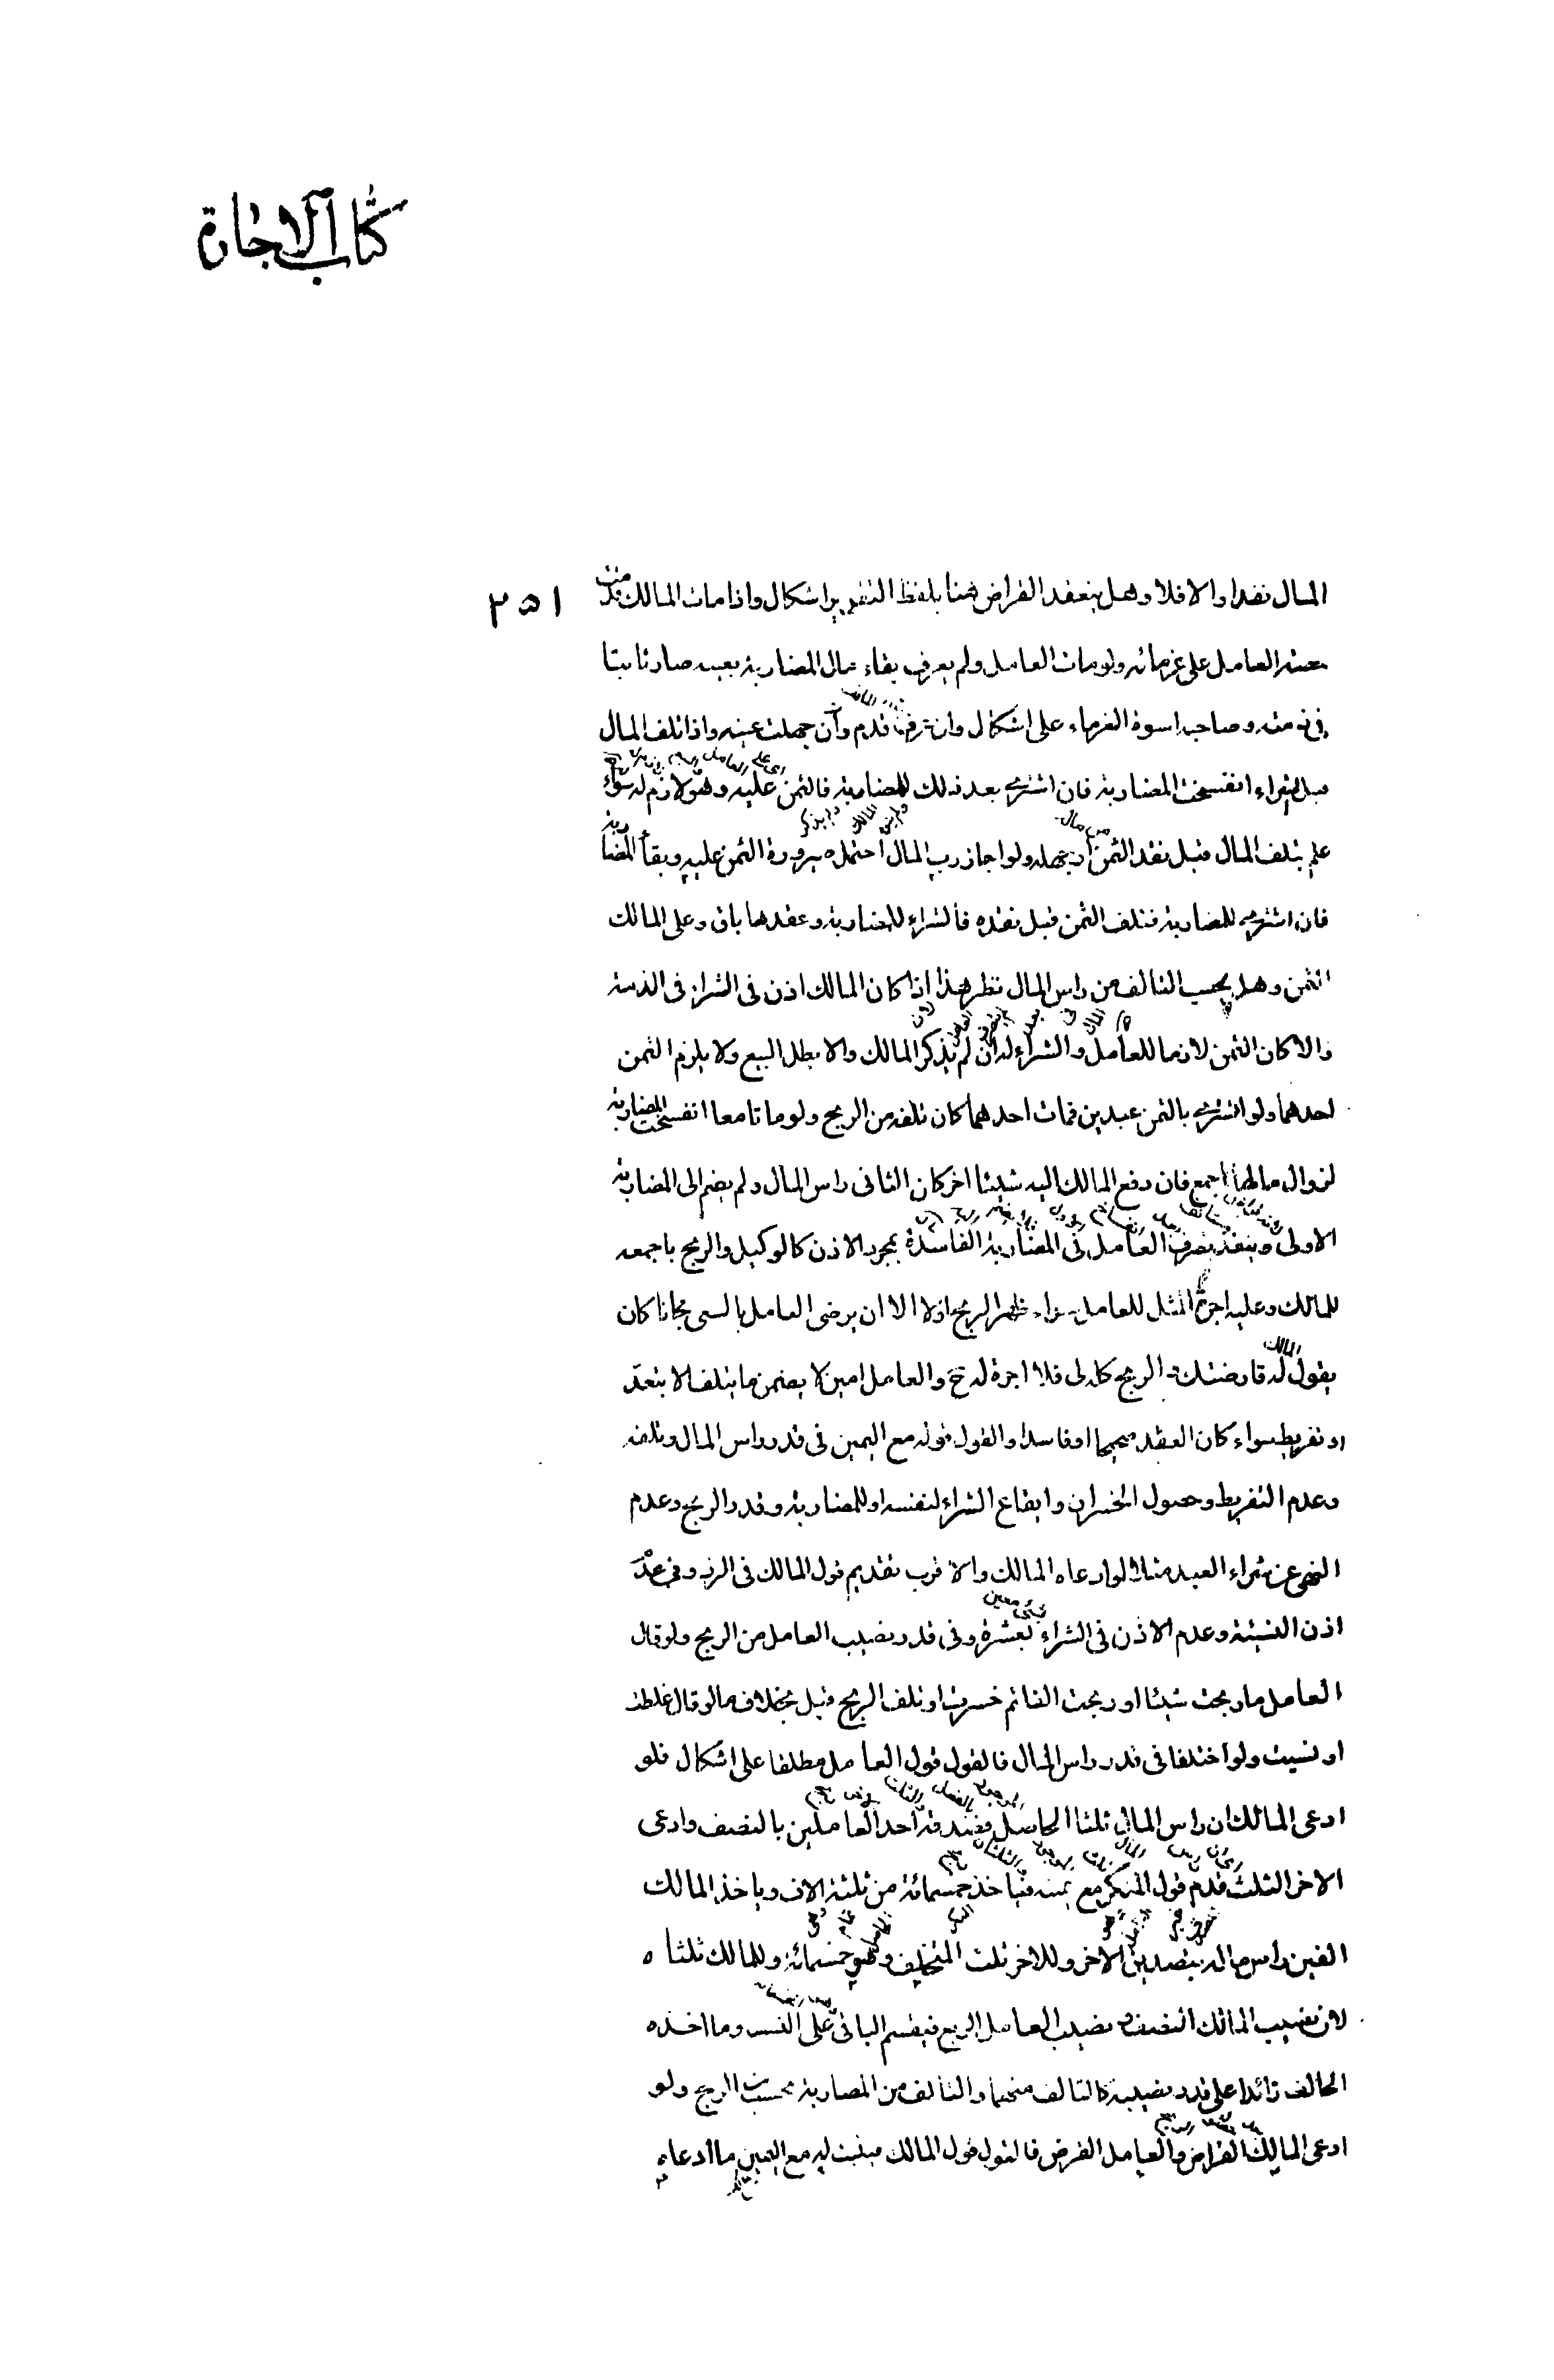 كتاب الاجارة
٢٥١
المال نقدا والا فلا وهل ينعقد القراض هنا بلفظ التقرير اشكال واذا مات المالك قدمت
حصته العامل على غرمائه ولو مات العامل ولم يعرف بقاء مال المضاربة بعينه صار ثابتا
في ذمته وصاحبه اسوة الغرماء على اشكال وان عرف قدم وان جهلت عينه واذا تلف المال
قبل الشراء انفسخت المضاربة فان اشترى بعد ذلك للمضاربة فالثمن عليه وهو لازم له سواء
علم بتلف المال قبل نقد الثمن او جهله ولو اجاز رب المال احتمل صيرورة الثمن عليه وبقاء المضاربة
فان اشترى للمضاربة فتلف الثمن قبل نقده فالشراء للمضاربة وعقدها باق وعلى المالك
الثمن وهل يحسب التالف من راس المال نظر هذا اذا كان المالك اذن فى الشراء فى الذمة
والا كان الثمن لازما للعامل والشراء له ان لم يذكر المالك والا بطل البيع ولا يلزم الثمن
احدهما ولو اشترى بالثمن عبدين فمات احدهما كان تلفه من الربح ولو ماتا معا انفسخت المضاربة
لزوال مالها اجمع فان دفع المالك اليه شيئا اخر كان الثانى راس المال ولم يضم الى المضاربة
الاولى وينفذ تصرف العامل فى المضاربة الفاسدة بمجرد الاذن كالوكيل والربح باجمعه
للمالك وعليه اجرة المثل للعامل سواء ظهر الربح او لا الا ان يرضى العامل بالسعى مجانا كان
يقول له قارضتك والربح كله لى فلا اجرة له ح والعامل امين لا يضمن ما يتلف الا بتعد
او تفريط سواء كان العقد صحيحا او فاسدا والقول قوله مع اليمين فى قدر راس المال وتلفه
وعدم التفريط وحصول الخسران وايقاع الشراء لنفسه او للمضاربة وقدر الربح وعدم
النهى عن شراء العبد مثلا لو ادعاه المالك والاقرب تقديم قول المالك فى الرد وفى عدم
اذن النسيئة وعدم الاذن فى الشراء بعشرة وفى قدر نصيب العامل من الربح ولو قال
العامل ما ربحت شيئا او ربحت الفا ثم خسرت او تلف الربح قبل بخلاف ما لو قال غلطت
او نسيت ولو اختلفا فى قدر راس المال فالقول قول العامل مطلقا على اشكال فلو
ادعى المالك ان راس المال ثلثا الحاصل فصدقه احد العاملين بالنصف وادعى
الاخر الثلث قدم قول المنكر مع يمينه فياخذ خمسمائة من ثلثة الاف وياخذ المالك
الفين راس ماله بتصديق الاخر وللاخر ثلث المتخلف وهو خمسمائة وللمالك ثلثاه
لان نصيب المالك النصف ونصيب العامل الربع فيقسم الباقى على النسب وما اخذه
الحالف زائدا على قدر نصيبه كالتالف منهما والتالف من المضاربة يحسب من الربح ولو
ادعى المالك القراض والعامل القرض فالقول قول المالك فيثبت له مع اليمين ما ادعاه